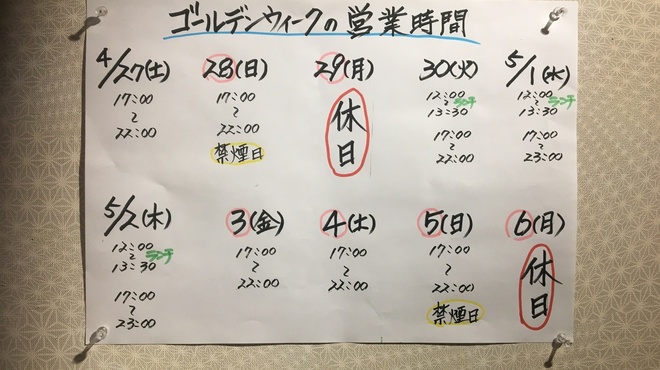 ゴールデンウィークの営業時間
4/27(土)
17:00
~
22:00
28(日)
17:00
~
22:00
禁煙日
29(月)
休日
30(火)
12:00
~ ランチ
13:30
17:00
~
22:00
5/1(水)
12:00
~ ランチ
13:30
17:00
~
23:00
5/2(木)
12:00
~ ランチ
13:30
17:00
~
23:00
3(金)
17:00
~
22:00
4(土)
17:00
~
22:00
5(日)
17:00
~
22:00
禁煙日
6(月)
休日